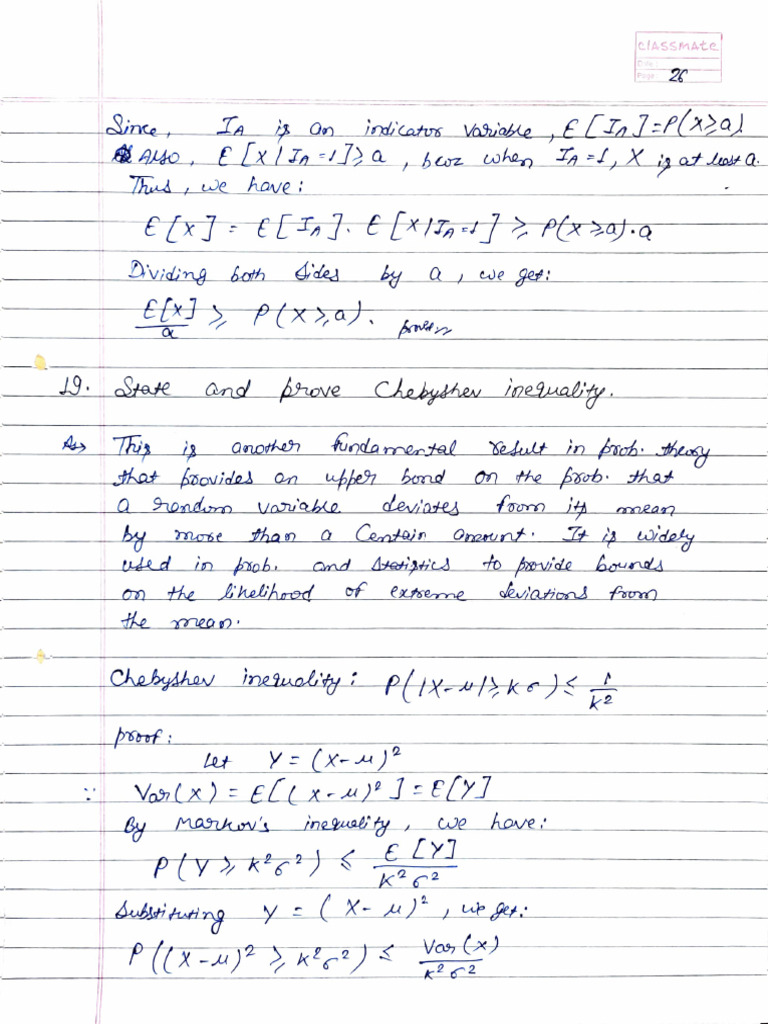 CLASSMATE
Date :
Page : 26
Since, I_A is an indicator variable, E[I_A] = P(X ≥ a).
Also, E[X | I_A = 1] ≥ a, bcoz when I_A = 1, X is at least a.
Thus, we have:
E[X] = E[I_A]. E[X | I_A = 1] ≥ P(X ≥ a) · a
Dividing both sides by a, we get:
E[X]/a ≥ P(X ≥ a).
19. State and prove Chebyshev inequality.
Ans This is another fundamental result in prob. theory
that provides an upper bond on the prob. that
a random variable deviates from its mean
by more than a Centain amount. It is widely
used in prob. and statistics to provide bounds
on the likelihood of extreme deviations from
the mean.
Chebyshev inequality: P(|X-μ| ≥ Kσ) ≤ 1/K²
proof:
Let Y = (X-μ)²
∵ Var(X) = E[(X-μ)²] = E[Y]
By Markov's inequality, we have:
P(Y ≥ K²σ²) ≤ E[Y]/K²σ²
Substituting Y = (X-μ)², we get:
P((X-μ)² ≥ K²σ²) ≤ Var(X)/K²σ²